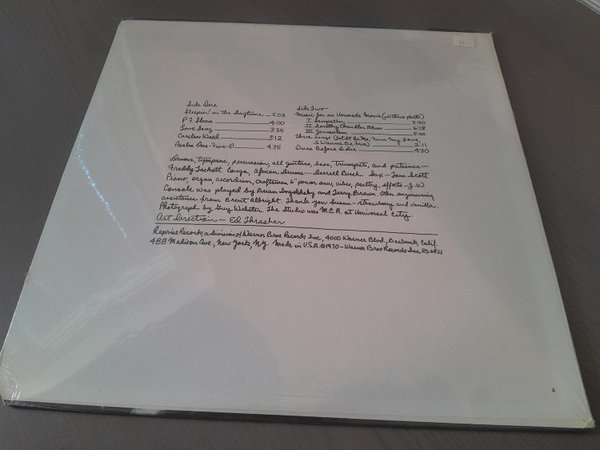 Side One
Sleepin' in the Daytime — 5:03
P.F. Sloan 4:00
Love Song 3:35
Careless Week 3:12
Psalm One-Five-O 4:35
Side Two
Music for an Unmade Movie (in three parts)
I 3:40
II Smokey Chandler Blues 6:18
III Jerusalem 5:00
Three Songs (Let It Be Me
I Wanna Be Free) 2:11
Once Before I Die 4:30
Drums, tympani, percussion, all guitars, bass, trumpets, and patience —
Freddy Tackett. Conga, African drums — Darrell Burch. Sax — Tom Scott
Piano, organ, accordian, craftsman 6" power saw, vibes, poetry, effects — J.W.
Console was played by Brian Ingoldsby and Terry Brown. Other engineering
assistance from Brent Albright. Thank you Susan — strawberry and vanilla.
Photograph by Guy Webster. The studio was M.C.A. at Universal City
Art Direction — Ed Thrasher
Reprise Records, a division of Warner Bros Records Inc., 4000 Warner Blvd., Burbank, Calif.
488 Madison Ave., New York, N.Y. Made in U.S.A. ©1970 — Warner Bros Records Inc. RS 6421